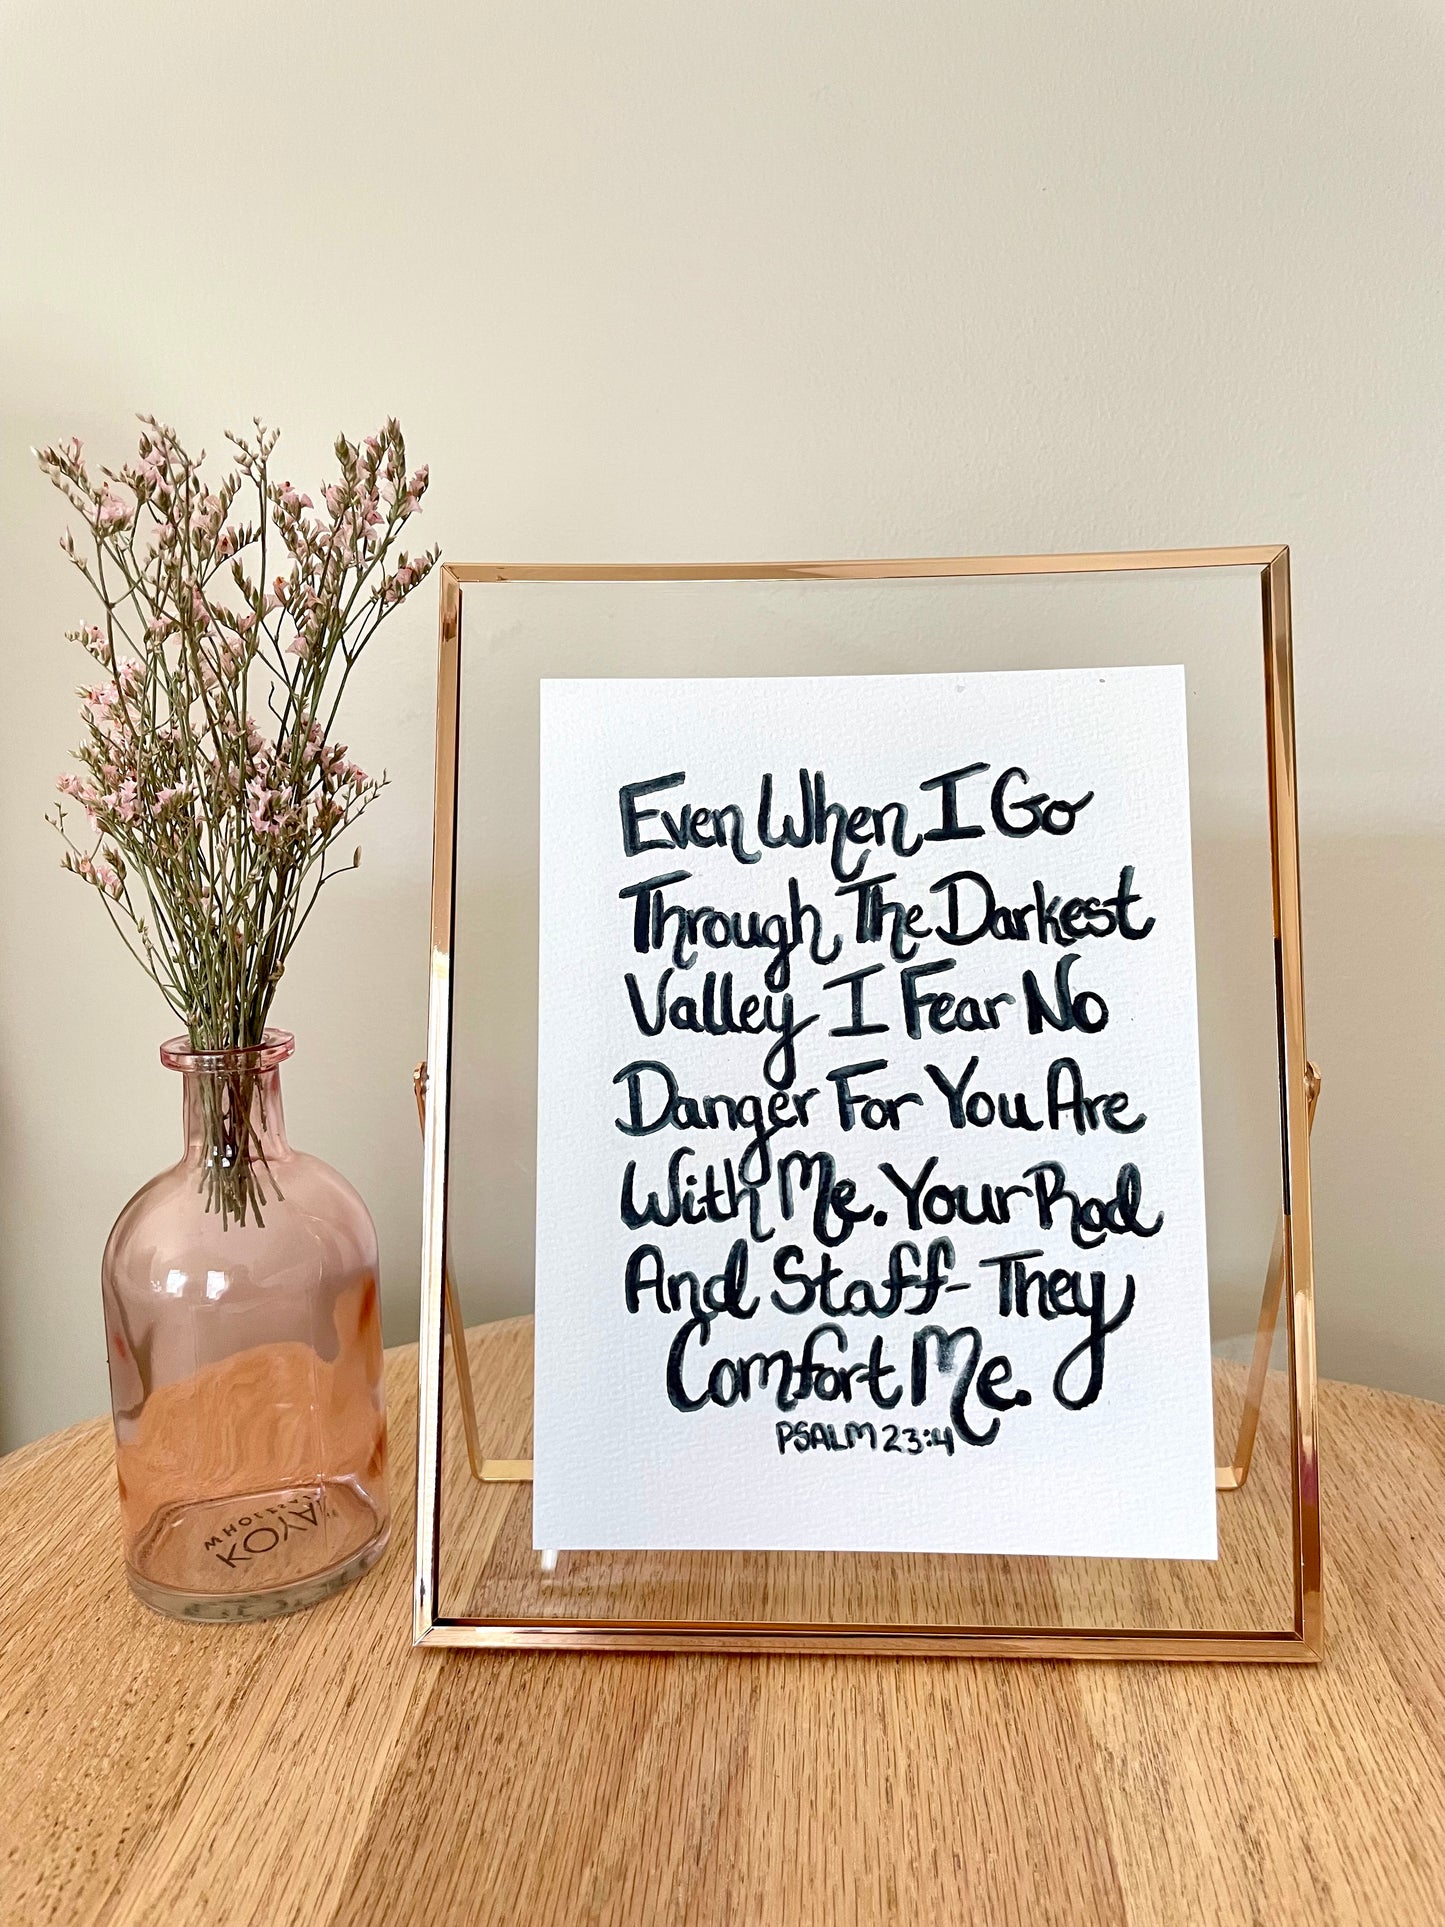 Even When I Go
Through The Darkest
Valley I Fear No
Danger For You Are
With Me. Your Rod
And Staff- They
Comfort Me.
PSALM 23:4
KOYA
WHOLESALE